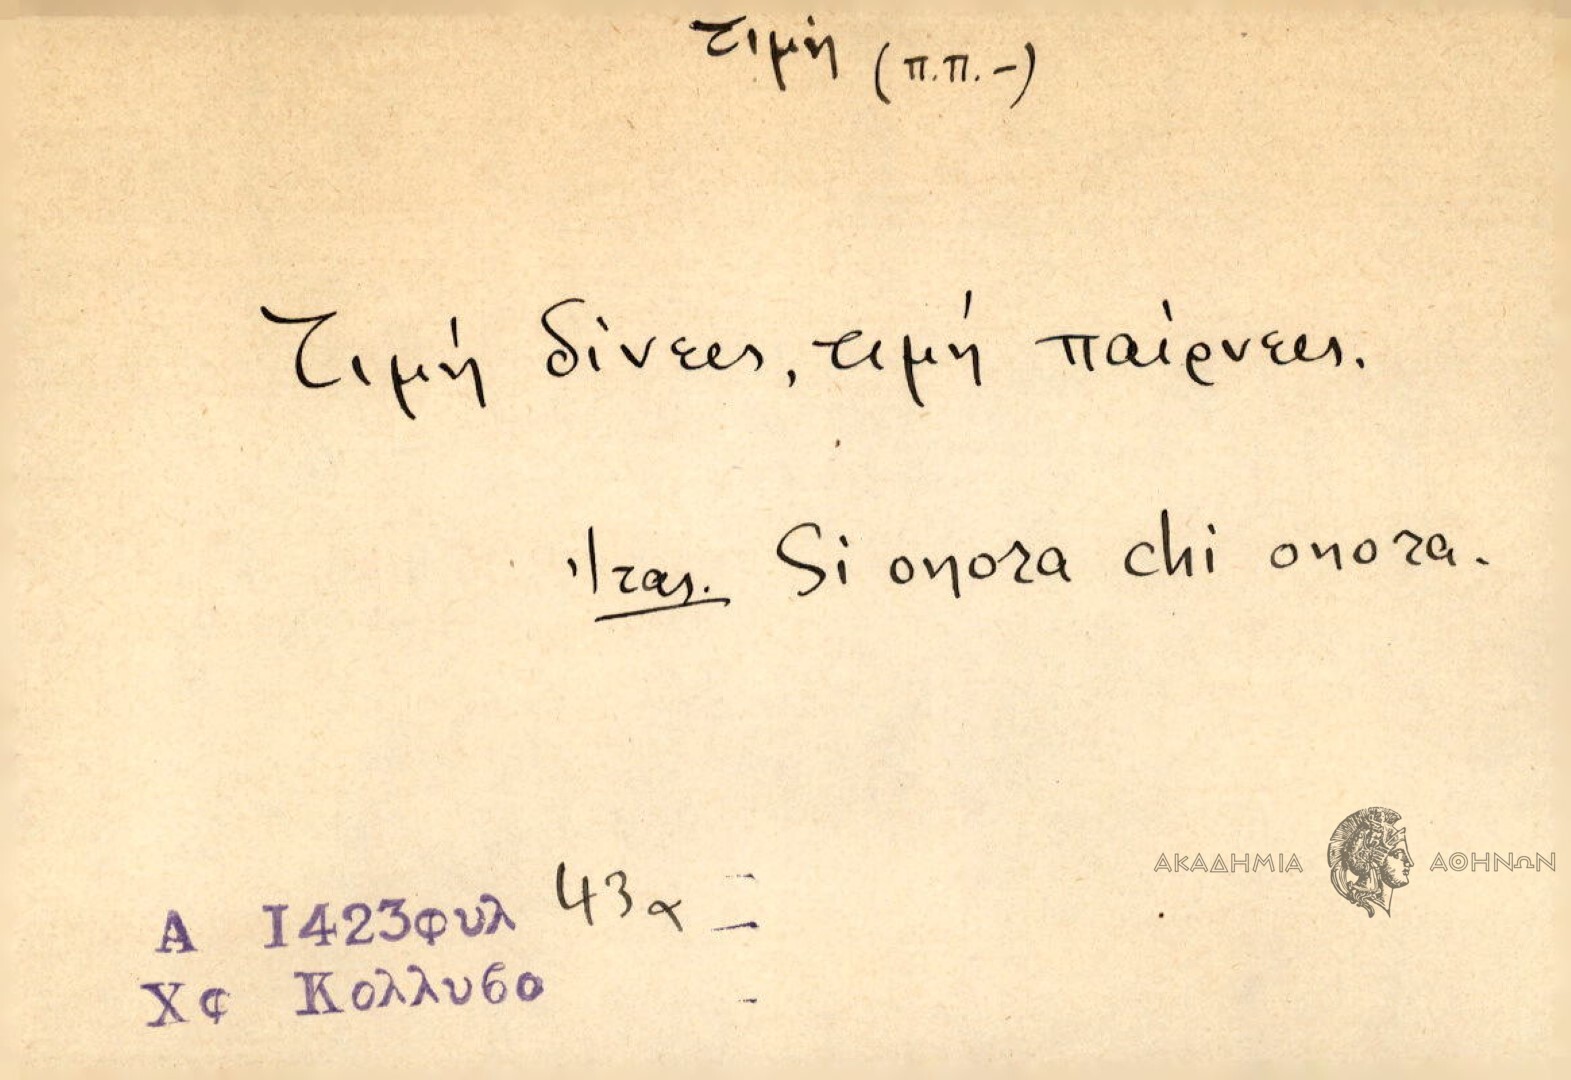 τιμή (π.π.-)
Τιμή δίνεις, τιμή παίρνεις.
Ἰτας. Si onora chi onora.
Α 1423φυλ 43α
Χφ Κολλυβο
ΑΚΑΔΗΜΙΑ ΑΘΗΝΩΝ